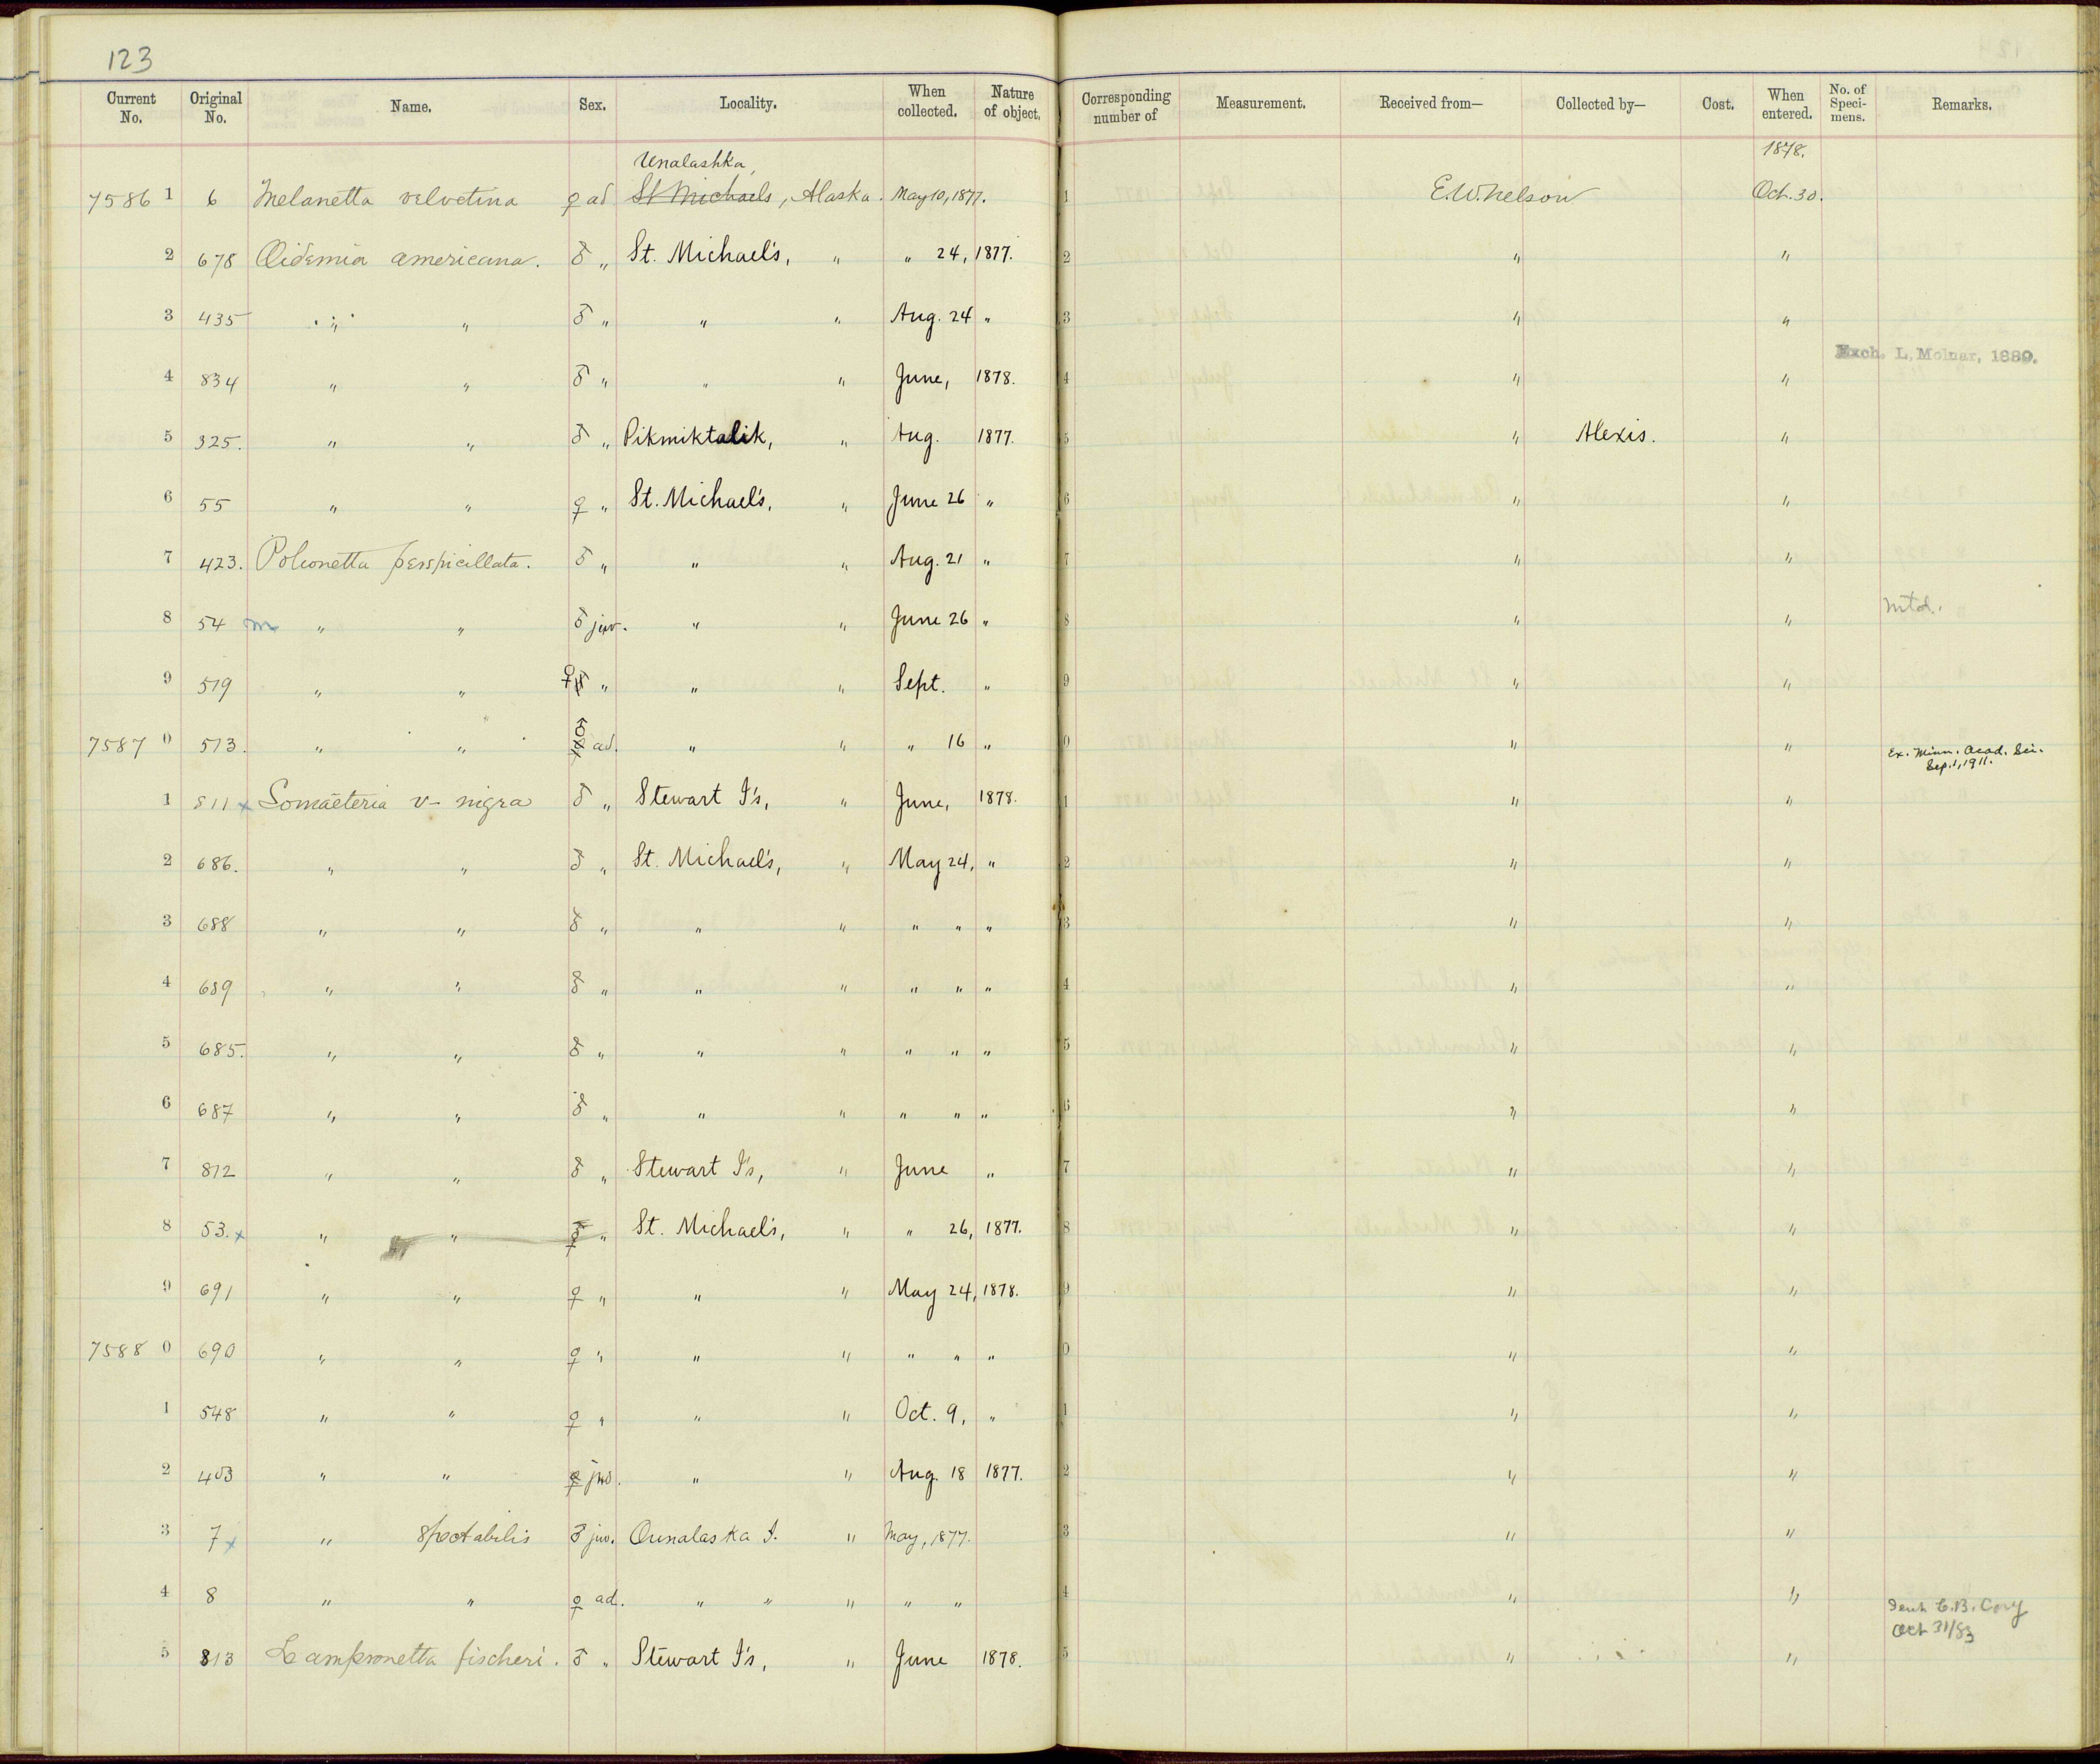 123
Current No. Original No. Name. Sex. Locality. When collected. Nature of object. Corresponding number of Measurement. Received from— Collected by— Cost. When entered. No. of Speci-mens. Remarks.
Unalashka, 1878.
7586 1 6 Melanetta velvetina ♀ ad St Michaels, Alaska. May 10, 1877. 1 E.W. Nelson Oct. 30.
2 678 Oidemia americana. ♂ " St. Michael's, " " 24, 1877. 2 " "
3 435 " " ♂ " " " Aug. 24 " 3 " "
Exch. L, Molnar, 1889.
4 834 " " ♂ " " " June, 1878. 4 " "
5 325. " " ♂ " Pikmiktalik, " Aug. 1877. 5 " Alexis. "
6 55 " " ♀ " St. Michael's, " June 26 " 6 " "
7 423. Pelionetta perspicillata. ♂ " " " Aug. 21 " 7 " "
8 54 m " " ♂ juv. " " June 26 " 8 " " Mtd.
9 519 " " ♀ " " " Sept. " 9 " "
7587 0 513. " " ♂ ad. " " " 16 " 0 " " Ex. Minn. Acad. Sci.
Sep. 1, 1911.
1 811 x Somateria v-nigra ♂ " Stewart I's, " June, 1878. 1 " "
2 686. " " ♂ " St. Michael's, " May 24, " 2 " "
3 688 " " ♂ " " " " " " 3 " "
4 689 " " ♂ " " " " " " 4 " "
5 685. " " ♂ " " " " " " 5 " "
6 687 " " ♂ " " " " " " 6 " "
7 812 " " ♂ " Stewart I's, " June " 7 " "
8 53. x " " ♀ " St. Michael's, " " 26, 1877. 8 " "
9 691 " " ♀ " " " May 24, 1878. 9 " "
7588 0 690 " " ♀ " " " " " " 0 " "
1 548 " " ♀ " " " Oct. 9, " 1 " "
2 403 " " ♀ juv. " " Aug. 18 1877. 2 " "
3 7 x " spectabilis ♂ juv. Ounalaska I. " May, 1877. 3 " "
4 8 " " ♀ ad. " " " " " 4 " " Sent C.B. Cory
Oct 31/83
5 813 Lampronetta fischeri. ♂ " Stewart I's, " June 1878. 5 " "